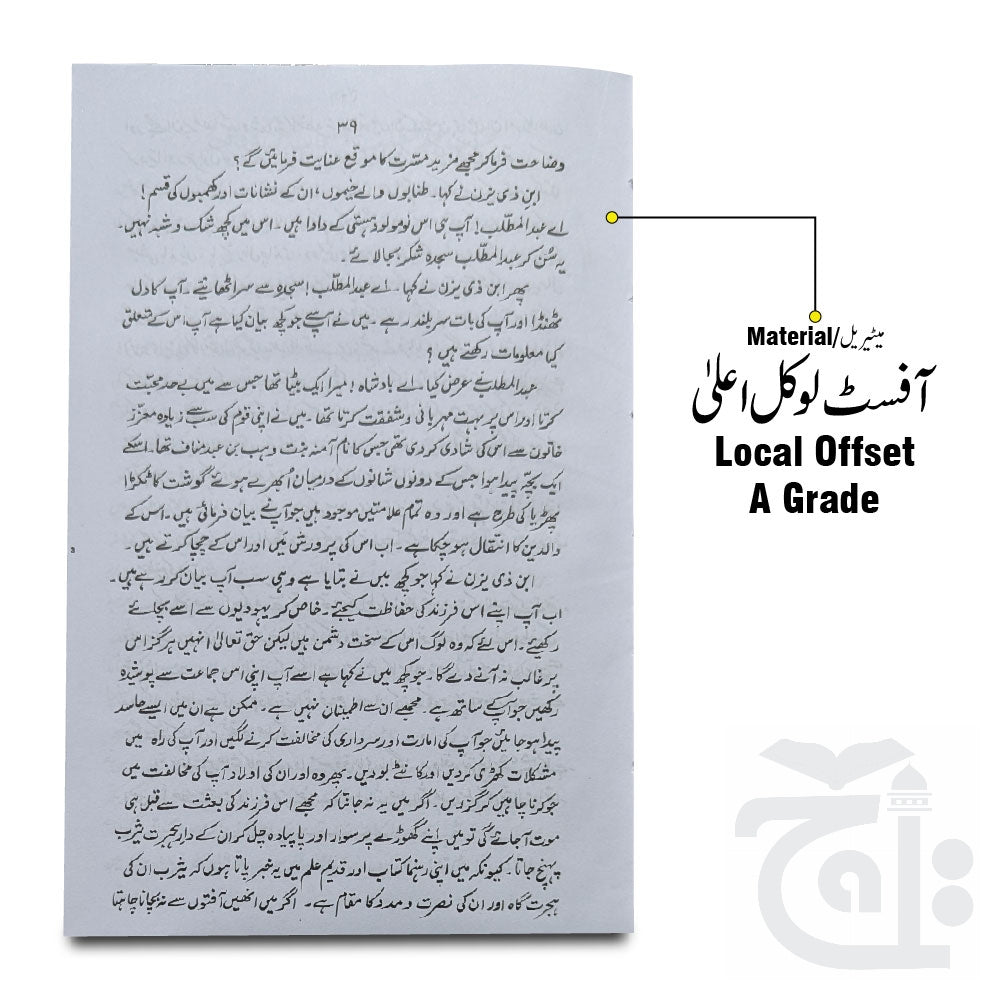 ۳۹
وضاحت فرما کر مجھے مزید مسرت کا موقع عنایت فرمائیں گے؟
ابن ذی یزن نے کہا۔ طنابوں والے خیموں، ان کے نشانات اور کھمبوں کی قسم!
اے عبدالمطلب! آپ ہی اس نومولود ہستی کے دادا ہیں۔ اس میں کچھ شک و شبہ نہیں۔
یہ سُن کر عبدالمطلب سجدہ شکر بجا لائے۔
پھر ابن ذی یزن نے کہا۔ اے عبدالمطلب! سجدہ سے سر اٹھائیے۔ آپ کا دل
ٹھنڈا اور آپ کی بات سربلند رہے۔ میں نے آپ سے جو کچھ بیان کیا ہے آپ اس کے متعلق
کیا معلومات رکھتے ہیں؟
عبدالمطلب نے عرض کیا۔ اے بادشاہ! میرا ایک بیٹا تھا جس سے میں بے حد محبت
کرتا اور اس پر بہت مہربانی و شفقت کرتا تھا۔ میں نے اپنی قوم کی سب سے زیادہ معزز
خاتون سے اس کی شادی کر دی تھی جس کا نام آمنہ بنت وہب بن عبد مناف تھا۔ اسکے
ایک بچہ پیدا ہوا جس کے دونوں شانوں کے درمیان اُبھرے ہوئے گوشت کا ٹکڑا
پھڑیا کی طرح ہے اور وہ تمام علامتیں موجود ہیں جو آپ نے بیان فرمائی ہیں۔ اس کے
والدین کا انتقال ہو چکا ہے۔ اب اس کی پرورش میں اور اس کے چچا کرتے ہیں۔
ابن ذی یزن نے کہا جو کچھ میں نے بتایا ہے وہی سب آپ بیان کر رہے ہیں۔
اب آپ اپنے اس فرزند کی حفاظت کیجئے۔ خاص کر یہودیوں سے اسے بچائے
رکھیئے۔ اس لئے کہ وہ لوگ اس کے سخت دشمن ہیں لیکن حق تعالیٰ انہیں ہرگز اس
پر غالب نہ آنے دے گا۔ جو کچھ میں نے کہا ہے اسے آپ اپنی اس جماعت سے پوشیدہ
رکھیں جو آپ کے ساتھ ہے۔ مجھے ان سے اطمینان نہیں ہے۔ ممکن ہے ان میں ایسے حاسد
پیدا ہو جائیں جو آپ کی امارت اور سرداری کی مخالفت کرنے لگیں اور آپ کی راہ میں
مشکلات کھڑی کر دیں اور کانٹے بو دیں۔ پھر وہ اور ان کی اولاد آپ کی مخالفت میں
جو کرنا چاہیں کر گزریں۔ اگر میں یہ نہ جانتا کہ مجھے اس فرزند کی بعثت سے قبل ہی
موت آ جائے گی تو میں اپنے گھوڑے پر سوار اور پا پیادہ چل کر ان کے دار ہجرت یثرب
پہنچ جاتا۔ کیونکہ میں اپنی رہنما کتاب اور قدیم علم میں یہ خبر پاتا ہوں کہ یثرب ان کی
ہجرت گاہ اور ان کی نصرت و مدد کا مقام ہے۔ اگر میں انھیں آفتوں سے نہ بچانا چاہتا
Material/میٹیریل
آفسٹ لوکل اعلیٰ
Local Offset
A Grade